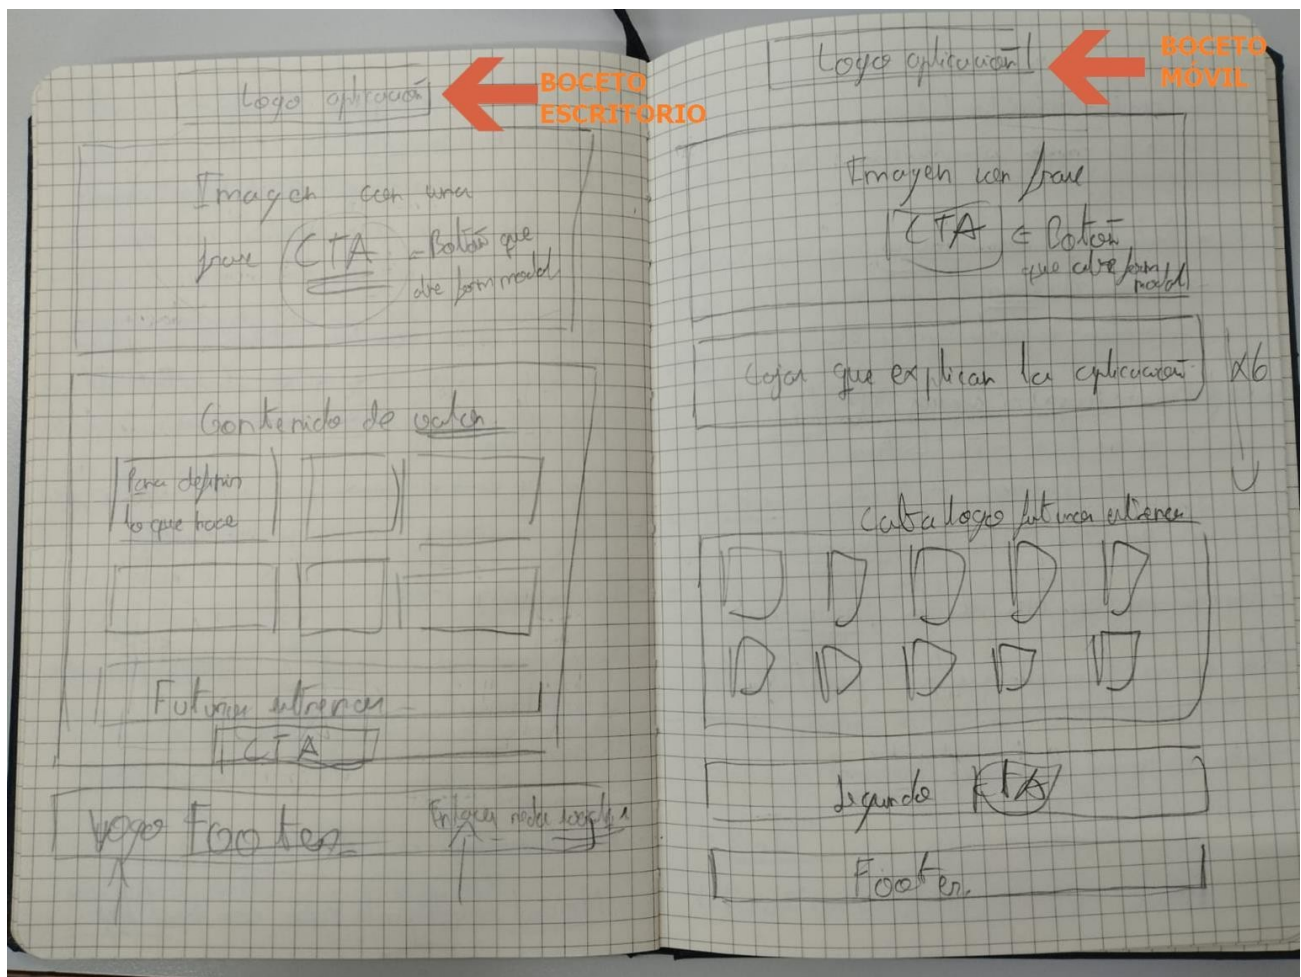 Logo aplicación
BOCETO
ESCRITORIO
Imagen con una
frase CTA = Botón que
abre form modal
Contenido de valor
Para definir
lo que hace
Futuros estrenos
CTA
Logo Footer
redes sociales
Logo aplicación
BOCETO
MÓVIL
Imagen con frase
CTA = Botón
que abre form
modal
Cajas que explican la aplicación
x6
Catalogo futuros estrenos
Segundo CTA
Footer